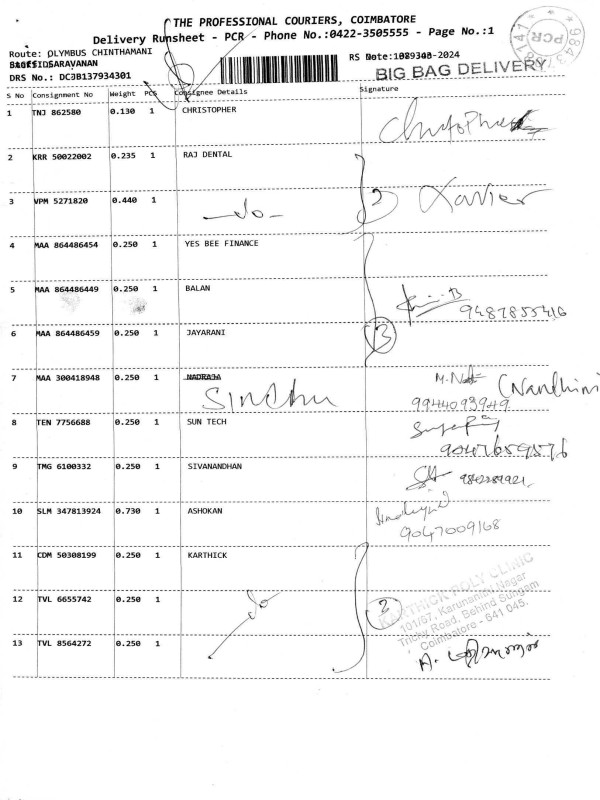 THE PROFESSIONAL COURIERS, COIMBATORE
Delivery Runsheet - PCR - Phone No.:0422-3505555 - Page No.:1
Route: OLYMBUS CHINTHAMANI
SARAVANAN
-2024
DRS No.: DC3B137934301
BIG BAG DELIVERY
PCR
S No Consignment No Weight PCS Consignee Details Signature
1 TNJ 862580 0.130 1 CHRISTOPHER
2 KRR 50022002 0.235 1 RAJ DENTAL
3 VPM 5271820 0.440 1 -do- Xavier
4 MAA 864486454 0.250 1 YES BEE FINANCE
5 MAA 864486449 0.250 1 BALAN
9487855416
6 MAA 864486459 0.250 1 JAYARANI 3
7 MAA 300418948 0.250 1 NADRAJA (Nandhini)
Sindhu 9944093949
8 TEN 7756688 0.250 1 SUN TECH
9047659576
9 TMG 6100332 0.250 1 SIVANANDHAN
10 SLM 347813924 0.730 1 ASHOKAN
9047009168
11 CDM 50308199 0.250 1 KARTHICK
KARTHICK POLY CLINIC
101/67, Karunanithi Nagar
Trichy Road, Behind Sungam
Coimbatore - 641 045.
12 TVL 6655742 0.250 1 do
13 TVL 8564272 0.250 1